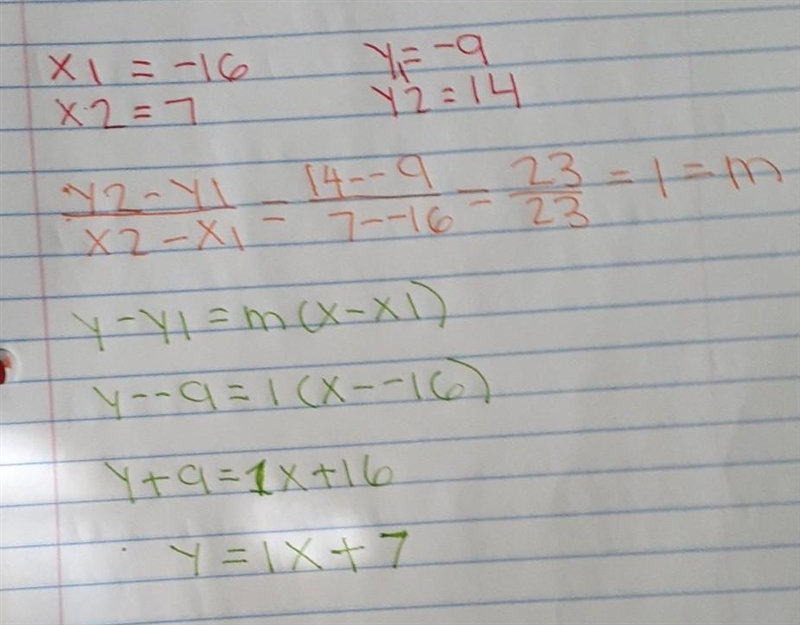 x1 = -16 y1 = -9
x2 = 7 y2 = 14
y2 - y1 / x2 - x1 = 14 - -9 / 7 - -16 = 23 / 23 = 1 = m
y - y1 = m(x - x1)
y - -9 = 1(x - -16)
y + 9 = 1x + 16
y = 1x + 7